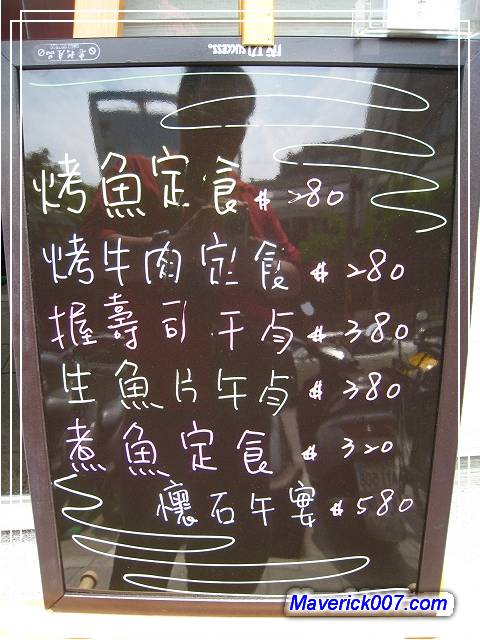 成功success®
烤魚定食 $280
烤牛肉定食 $280
握壽司午与 $380
生魚片午与 $380
煮魚定食 $320
懷石午宴 $580
Maverick007.com